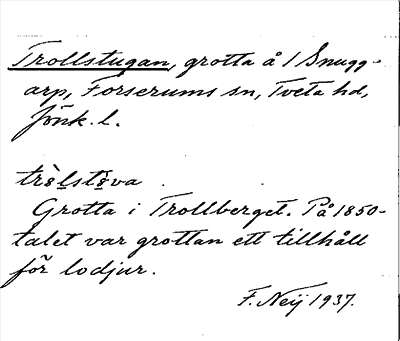 Trollstugan, grotta å 1 Snugg-
arp, Forserums sn, Tveta hd,
Jönk. l.
trò̤lstò̤va
Grotta i Trollberget. På 1850-
talet var grottan ett tillhåll
för lodjur.
F. Neij 1937.